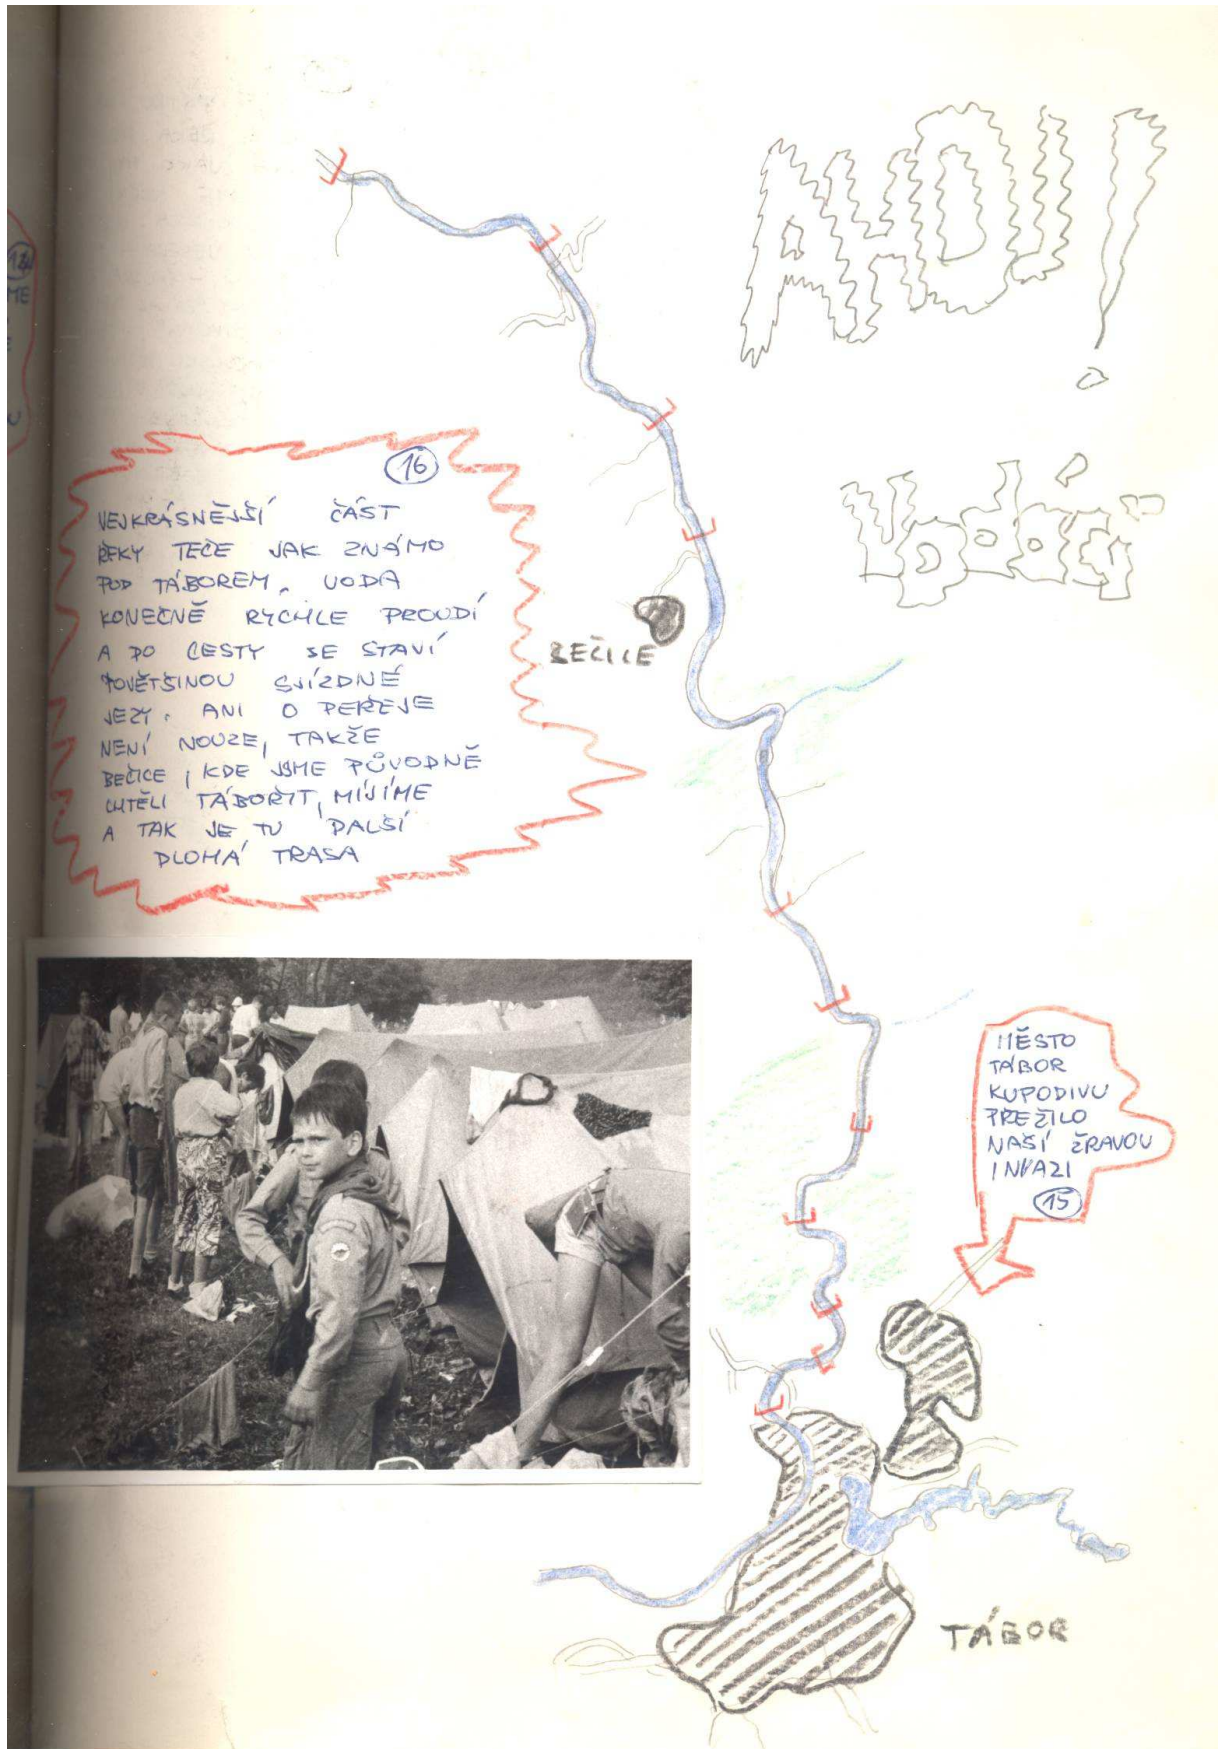 AHOJ!
Vodáci
16
NEJKRÁSNĚJŠÍ ČÁST
ŘEKY TEČE JAK ZNÁMO
POD TÁBOREM. VODA
KONEČNĚ RYCHLE PROUDÍ
A DO CESTY SE STAVÍ
POVĚTŠINOU SJÍZDNÉ
JEZY. ANI O PEŘEJE
NENÍ NOUZE, TAKŽE
BEČICE, KDE JSME PŮVODNĚ
CHTĚLI TÁBOŘIT, MÍJÍME
A TAK JE TU DALŠÍ
DLOHÁ TRASA
BEČICE
MĚSTO
TÁBOR
KUPODIVU
PŘEŽILO
NAŠÍ ŽRAVOU
INVAZI
15
TÁBOR